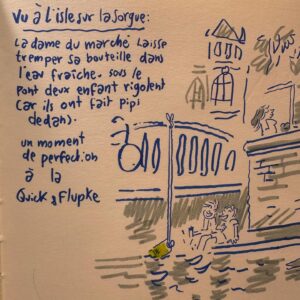 Vu à L'isle sur la Sorgue:
La dame du marché laisse
tremper sa bouteille dans
l'eau fraîche. sous le
Pont deux enfant rigolent
car ils ont fait pipi
dedans.
un moment
de perfection
à la
Quick & Flupke